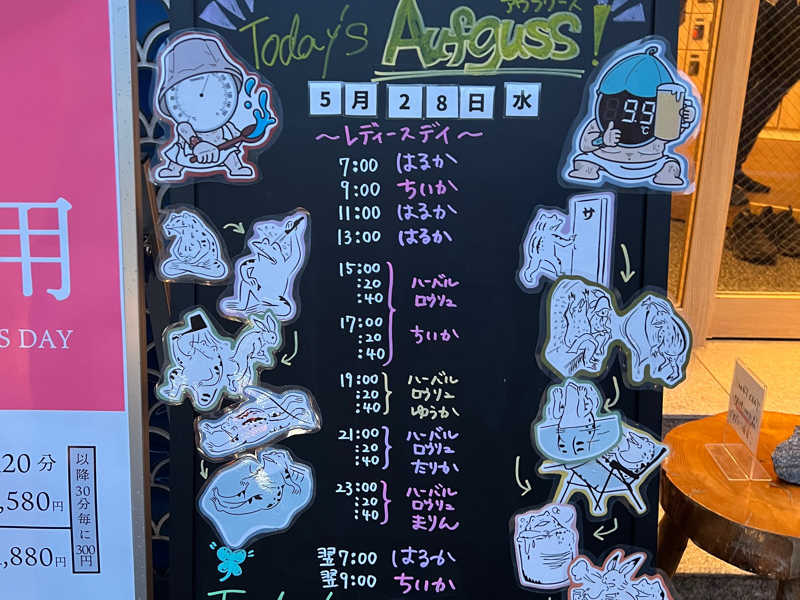 アウフグース
Today's Aufguss!
5月28日 水
〜レディースデイ〜
7:00 はるか
9:00 ちいか
11:00 はるか
13:00 はるか
15:00
:20
:40
ハーバル
ロウリュ
17:00
:20
:40
ちいか
19:00
:20
:40
ハーバル
ロウリュ
ゆうか
21:00
:20
:40
ハーバル
ロウリュ
たりか
23:00
:20
:40
ハーバル
ロウリュ
まりん
翌7:00 はるか
翌9:00 ちいか
99℃
サ
用
S DAY
20分
,580円
,880円
以降30分毎に300円